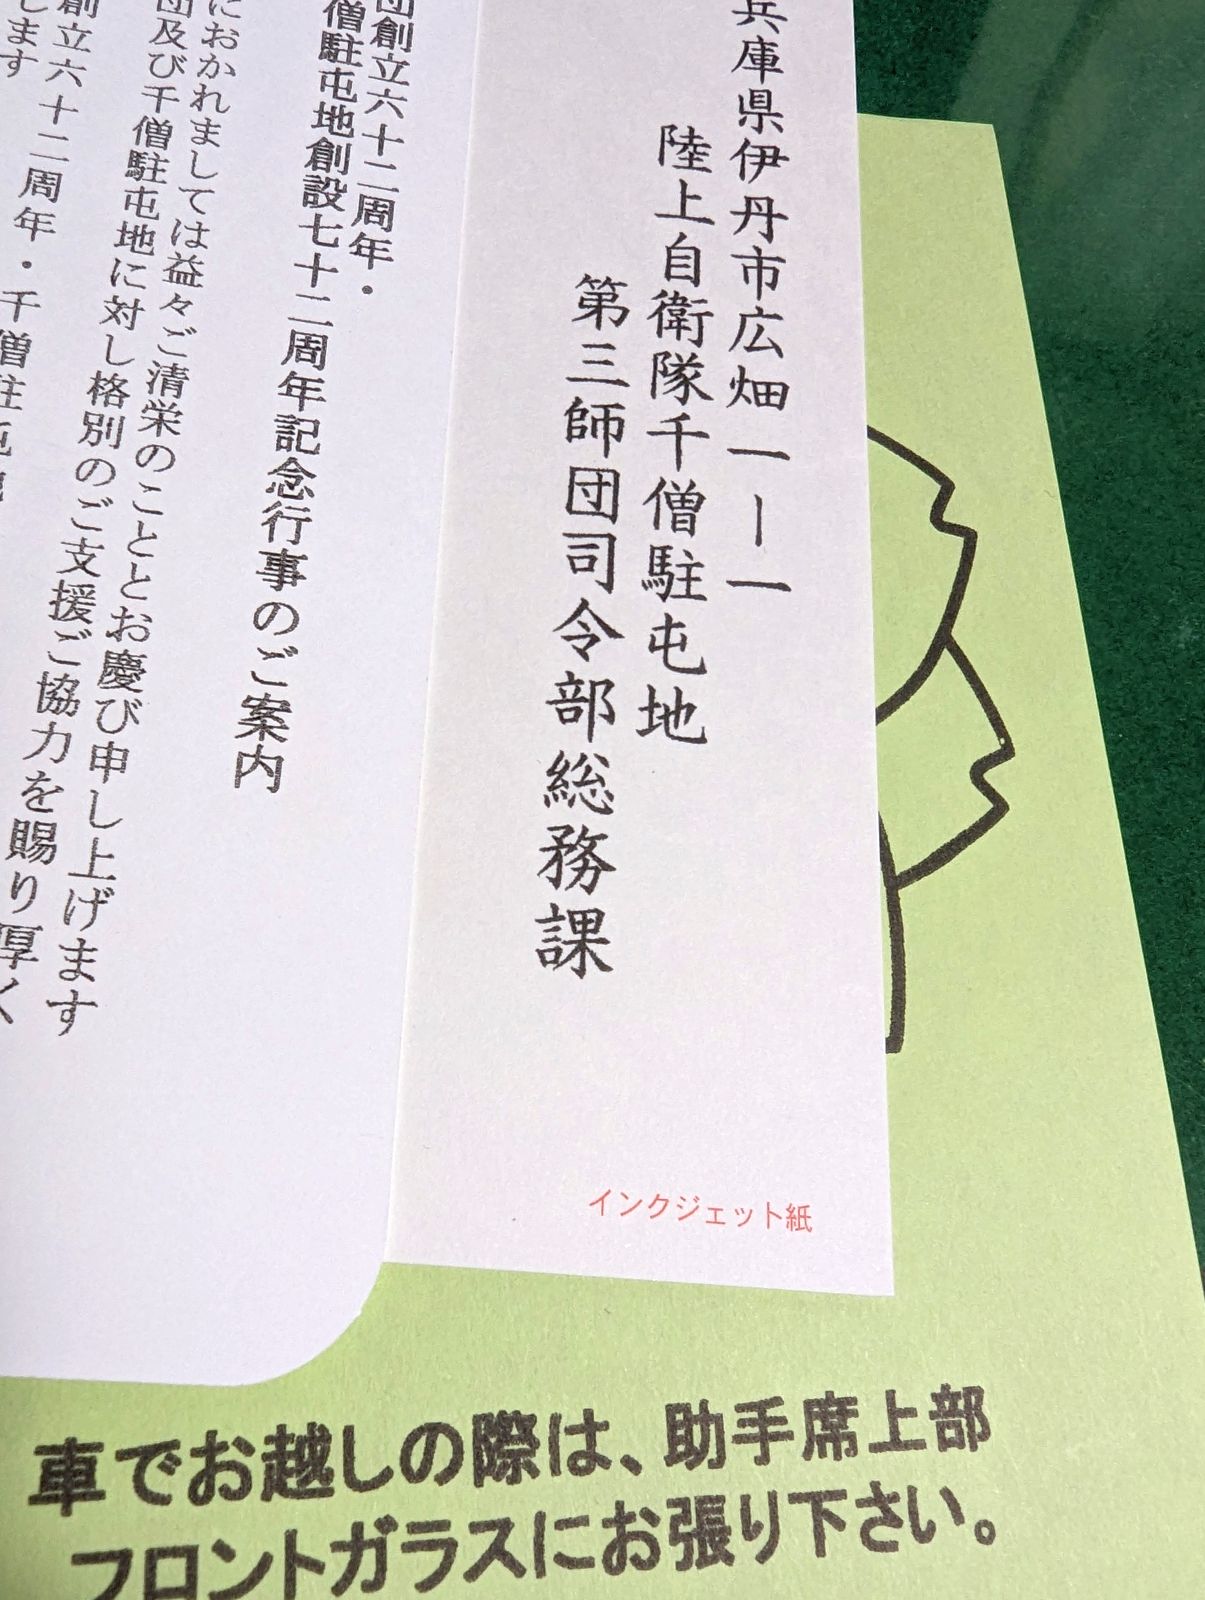 兵庫県伊丹市広畑一ー一
陸上自衛隊千僧駐屯地
第三師団司令部総務課
インクジェット紙
団創立六十二周年・
僧駐屯地創設七十二周年記念行事のご案内
におかれましては益々ご清栄のこととお慶び申し上げます
団及び千僧駐屯地に対し格別のご支援ご協力を賜り厚く
創立六十二周年・千僧駐屯
します
車でお越しの際は、助手席上部
フロントガラスにお張り下さい。